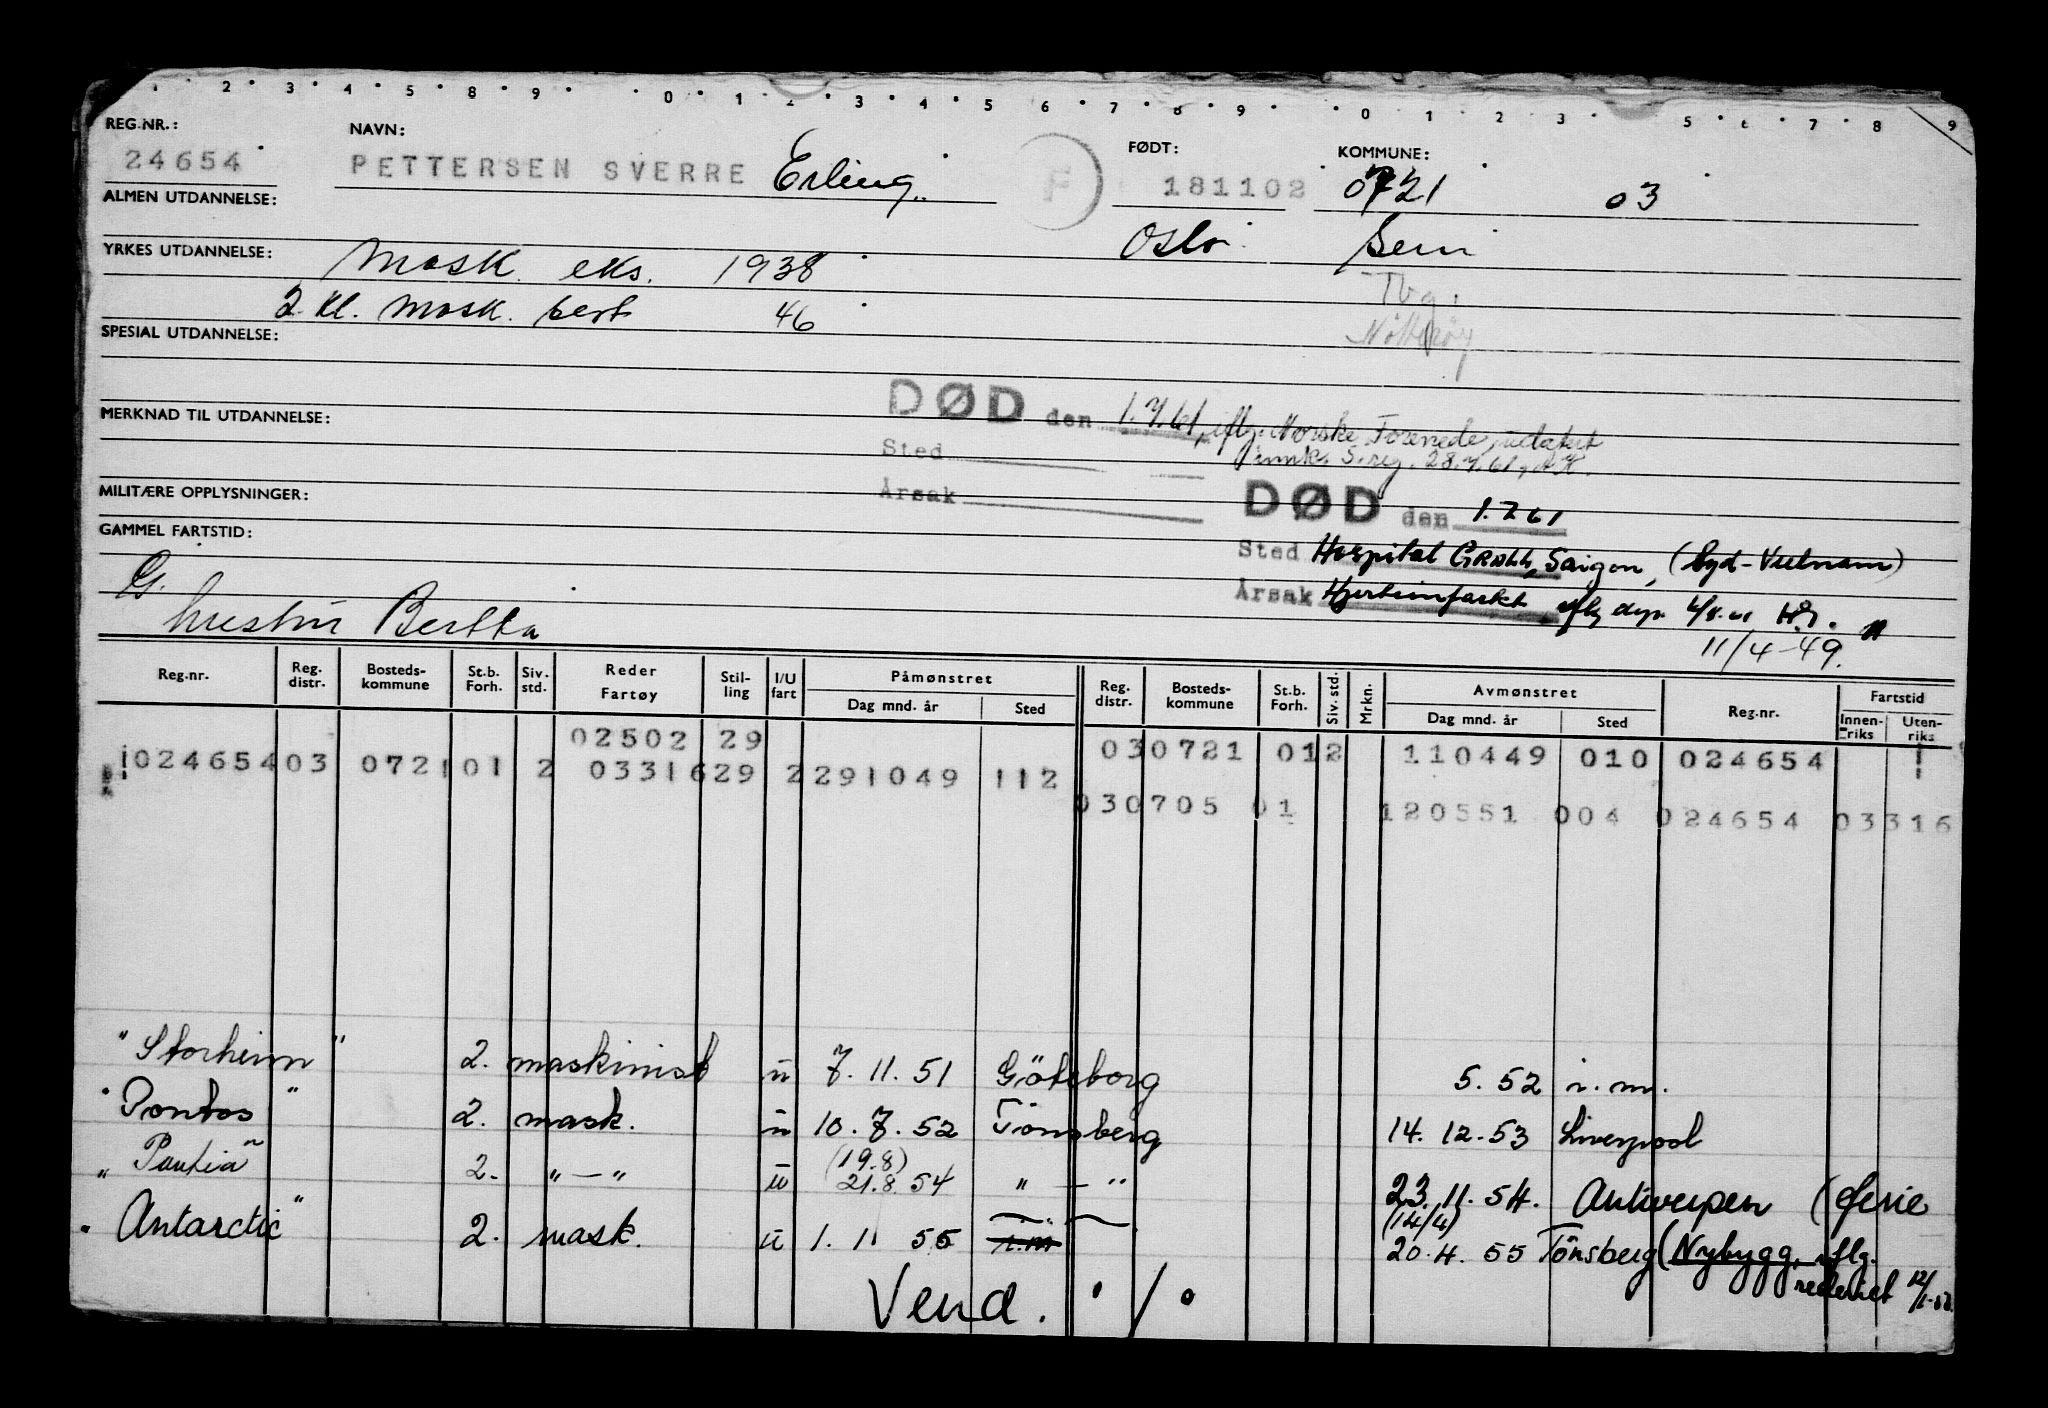 2 3 4 5 8 9 0 1 2 3 4 5 6 7 8 9 0 1 2 3 5 6 7 8 9
REG.NR.: NAVN: FØDT: KOMMUNE:
24654 PETTERSEN SVERRE Erling F 181102 0721 03
ALMEN UTDANNELSE:
Oslo Sem
YRKES UTDANNELSE: Mask. eks. 1938
Tbg.
2 kl. mask. sert 46
Nøtterøy
SPESIAL UTDANNELSE:
DØD den 1.7.61, iflg. Norske Forenede,
MERKNAD TIL UTDANNELSE:
Sted
S.reg. 28.7.61,
Årsak
MILITÆRE OPPLYSNINGER:
DØD den 1.7 61
GAMMEL FARTSTID:
Sted Hospital GRALL, Saigon, (Syd-Vietnam)
Årsak Hjerteinfarkt iflg dsp.
G.
hustru Bertha
11/4-49.
Reg.nr. Reg. distr. Bosteds- kommune St.b. Forh. Siv. std. Reder Fartøy Stil- ling I/U fart Påmønstret Dag mnd. år Sted Reg. distr. Bosteds- kommune St.b. Forh. Siv. std. Mrkn. Avmønstret Dag mnd. år Sted Reg.nr. Fartstid Innen- riks Uten- riks
02502 29 030721 012 110449 010 024654
024654 03 0721 01 2 03316 29 2 291049 112
030705 01 120551 004 024654 03316
"Storheim" 2. maskinist u 7. 11. 51 Göteborg 5. 52 i. m.
"Pontos" 2. mask. u 10. 7. 52 Tønsberg 14. 12. 53 Liverpool
(19.8)
"Pantia" 2. " — " u 21.8. 54 " — " 23. 11. 54. Antwerpen (ferie
(14/4)
"Antarctic" 2. mask. u 1. 1 55 i.m 20. 4. 55 Tönsberg (Nybygg, iflg.
rederiet
Vend. ./.